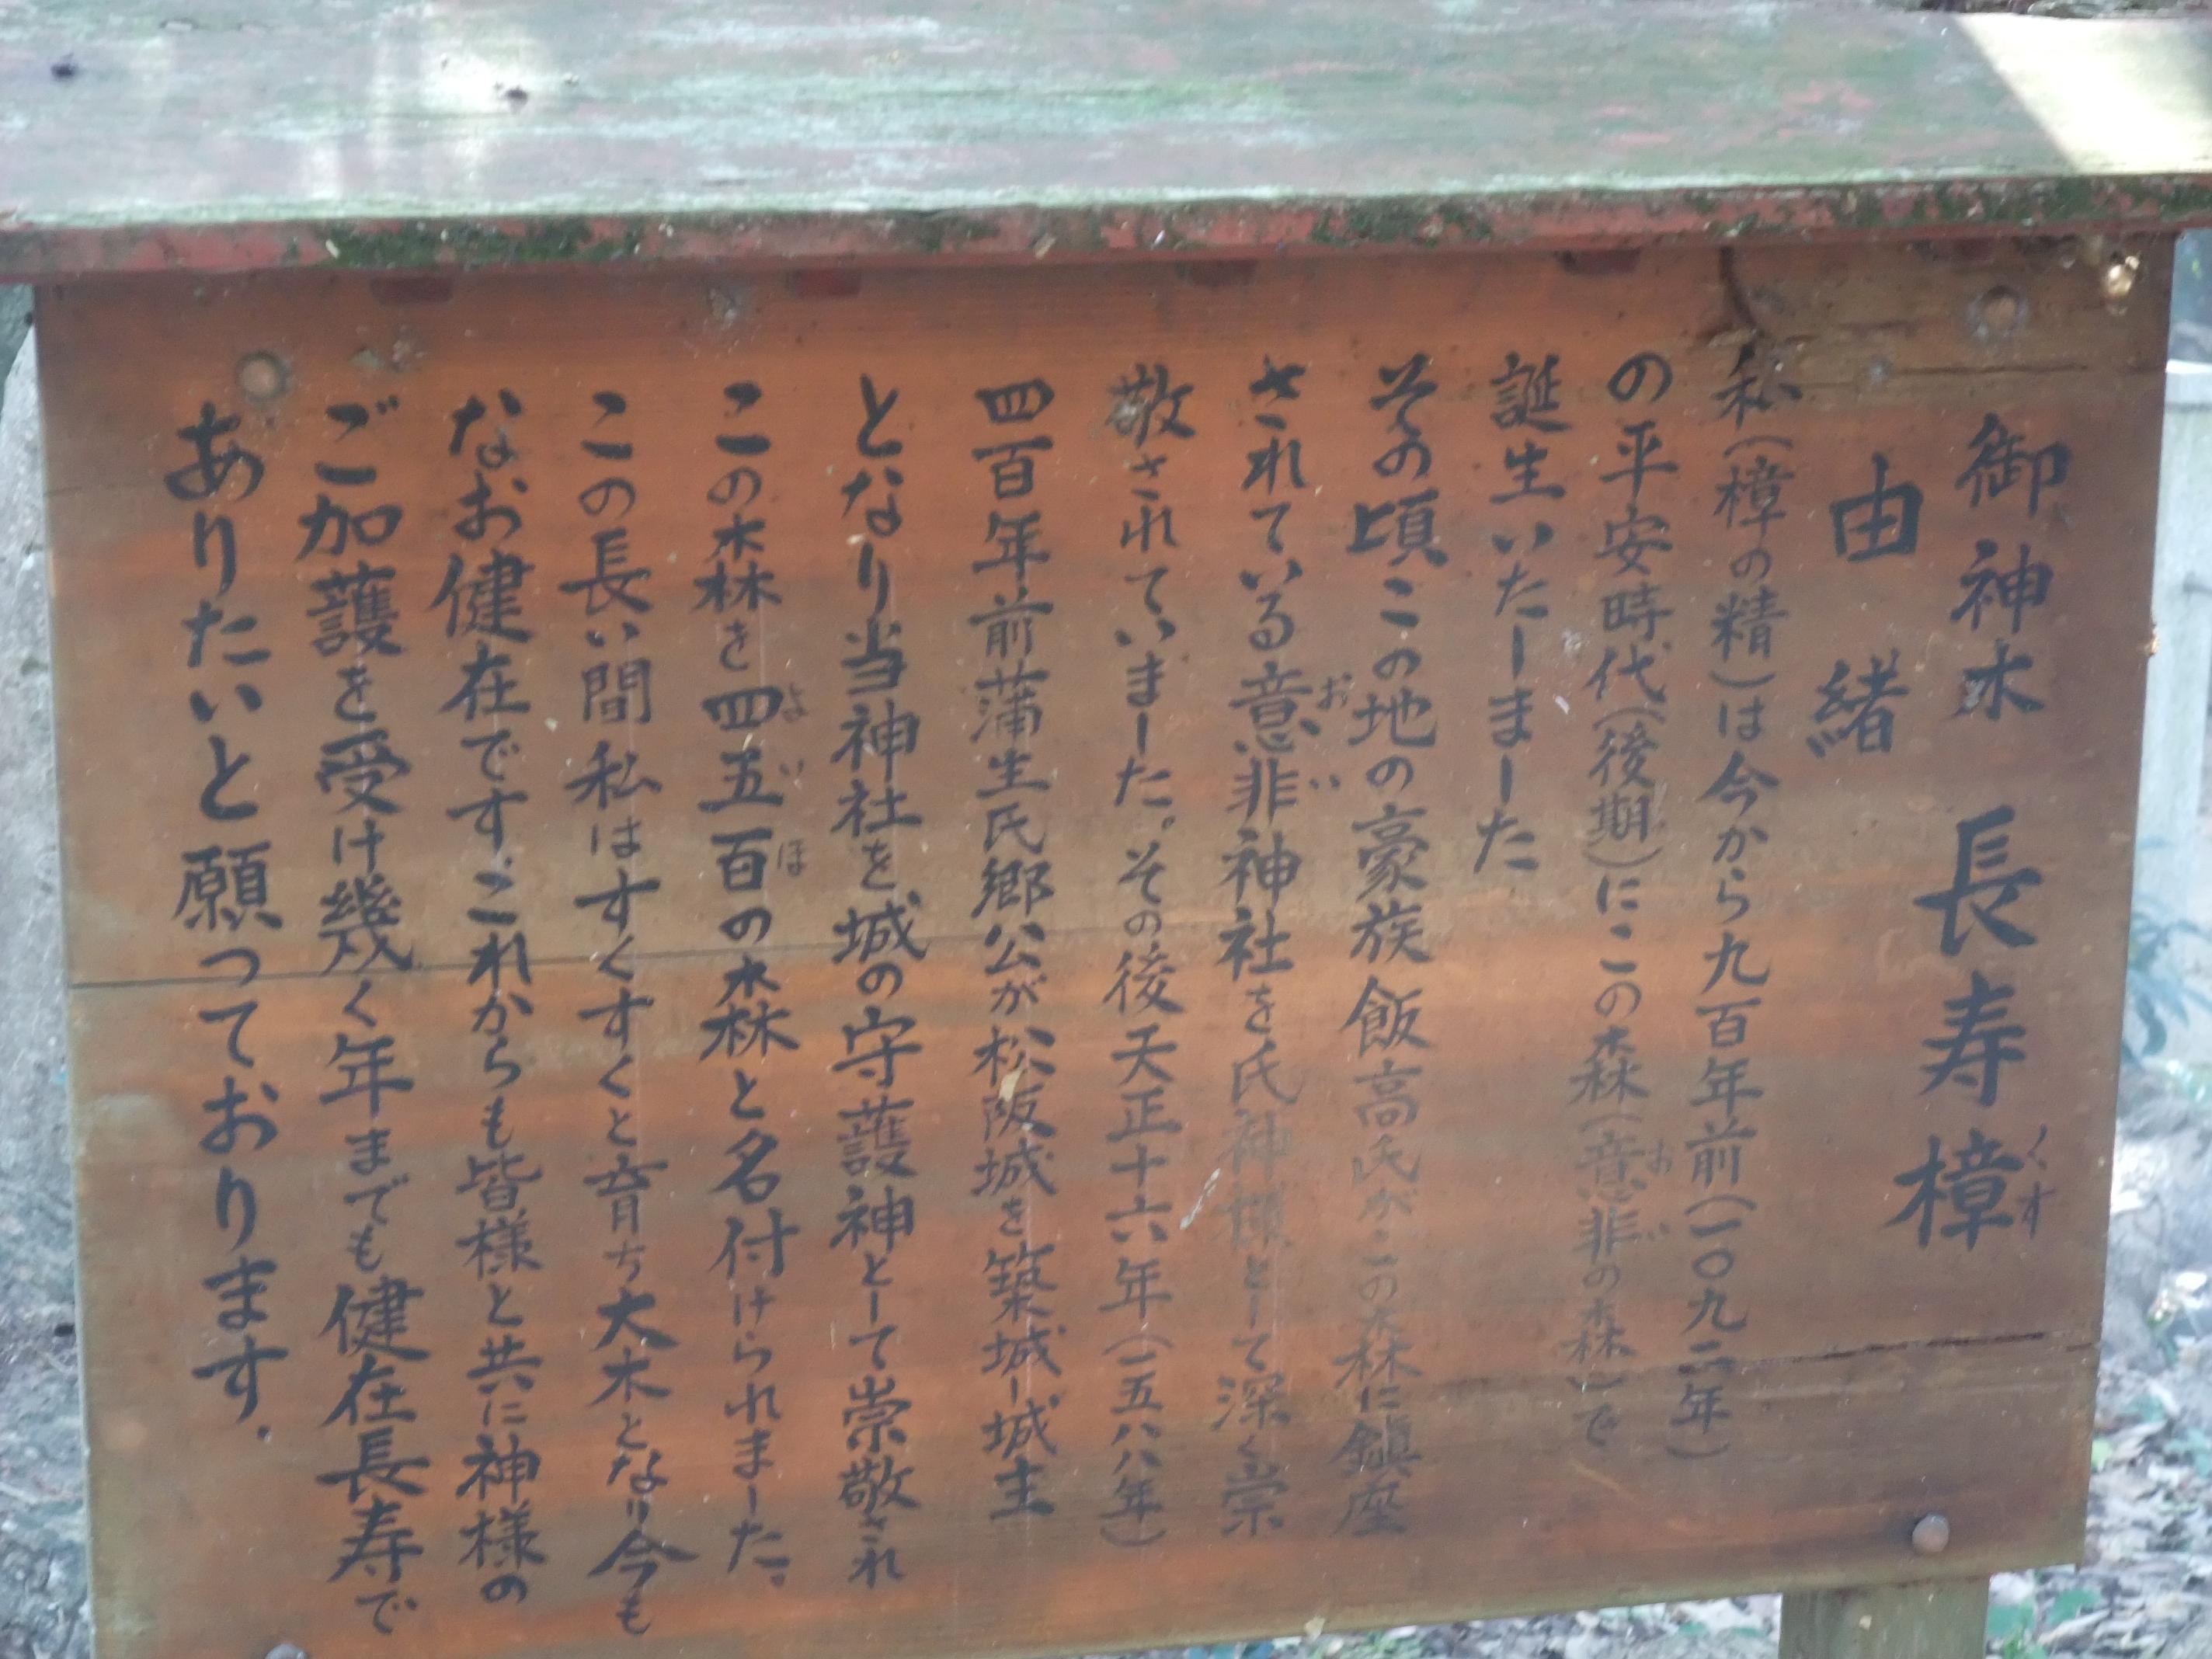 御神木 長寿樟
くす
由緒
私(樟の精)は今から九百年前(一〇九二年)
の平安時代(後期)にこの森(意非の森)で
おい
誕生いたしました
その頃この地の豪族飯高氏がこの森に鎮座
されている意非神社を氏神様として深く崇
おい
敬されていました。その後天正十六年(一五八八年)
四百年前蒲生氏郷公が松阪城を築城し城主
となり当神社を城の守護神として崇敬され
この森を四五百の森と名付けられました。
よいほ
この長い間私はすくすくと育ち大木となり今も
なお健在です。これからも皆様と共に神様の
ご加護を受け幾く年までも健在長寿で
ありたいと願っております。